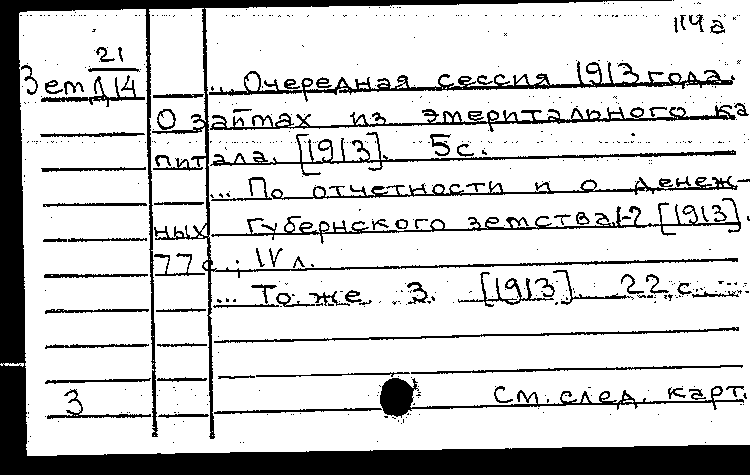 114а
21
Зет Д14
... Очередная сессия 1913 года.
О займах из эмеритального ка
питала. [1913]. 5с.
... По отчетности и о денеж-
ных Губернского земства.1-2 [1913].
77с.; IV л.
... То же 3. [1913]. 22с. ...
3
См. след. карт.